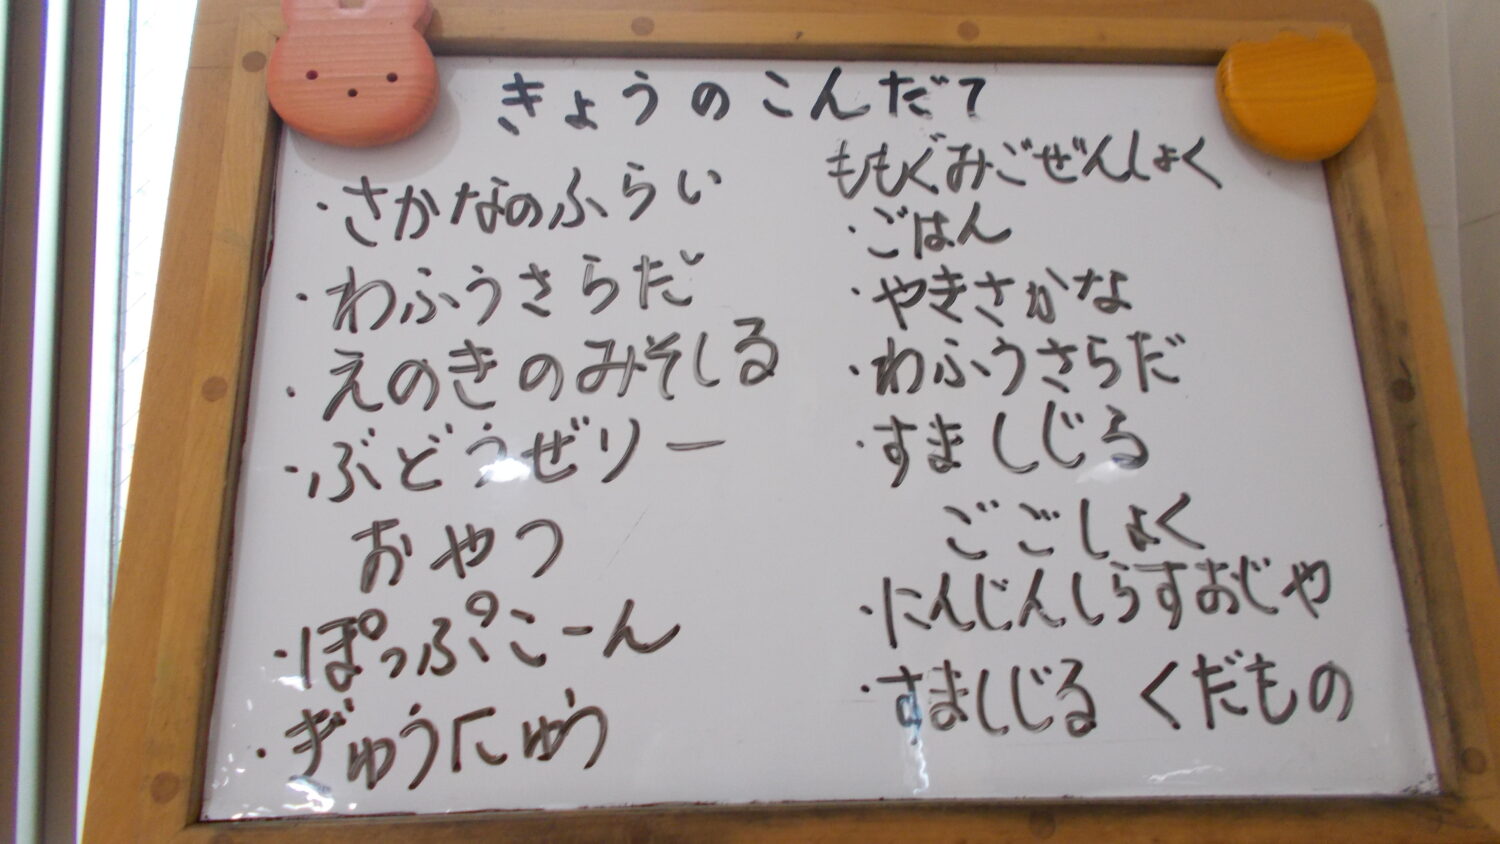 きょうのこんだて
・さかなのふらい
・わふうさらだ
・えのきのみそしる
・ぶどうぜりー
おやつ
・ぽっぷこーん
・ぎゅうにゅう
ももぐみごぜんしょく
・ごはん
・やきさかな
・わふうさらだ
・すましじる
ごごしょく
・にんじんしらすおじや
・すましじる くだもの